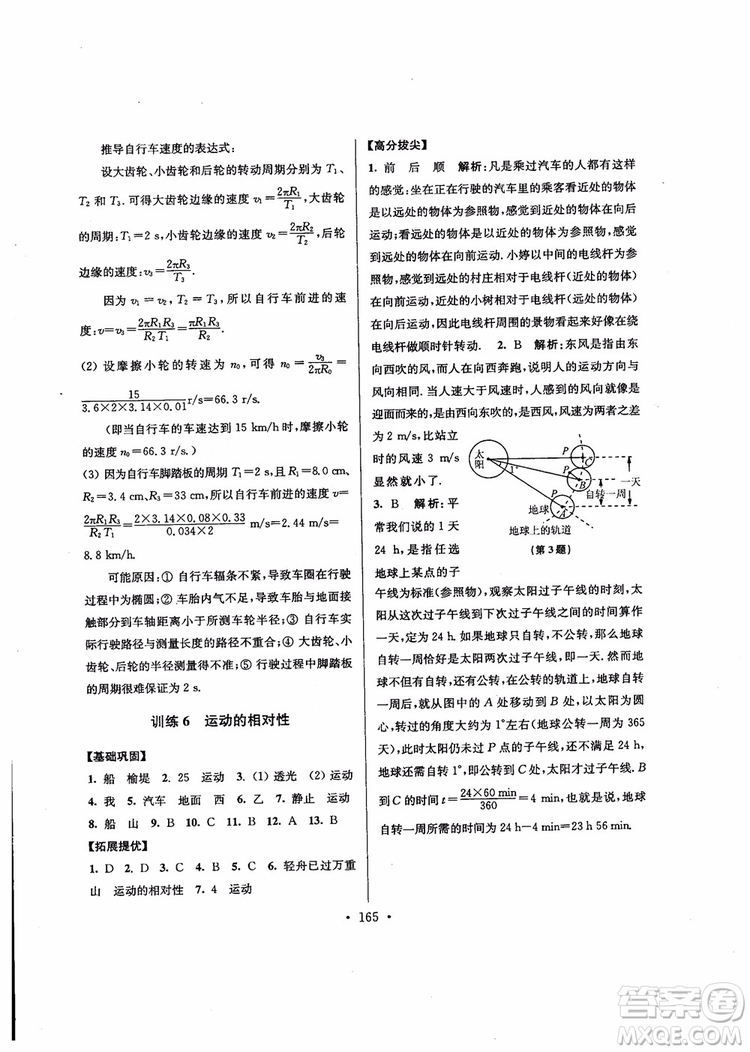 推导自行车速度的表达式:
设大齿轮、小齿轮和后轮的转动周期分别为 T₁、
T₂ 和 T₃. 可得得大齿轮边缘的速度 v₁=2πR₁/T₁,大齿轮
的周期:T₁=2 s,小齿轮边缘的速度 v₂=2πR₂/T₂,后轮
边缘的速度:v₃=2πR₃/T₃.
因为 v₁=v₂,T₂=T₃,所以自行车前进的速
度:v=v₃=2πR₁R₃/R₂T₁=πR₁R₃/R₂.
(2) 设摩擦小轮的转速为 n₀,可得 n₀=v₃/2πR₀=
15/3.6×2×3.14×0.01 r/s=66.3 r/s.
(即当自行车的车速达到 15 km/h 时,摩擦小轮
的速度 n₀=66.3 r/s.
(3) 因为自行车脚踏板的周期 T₁=2 s,R₁=8.0 cm,
R₂=3.4 cm,R₃=33 cm,所以自行车的速度 v=
2πR₁R₃/R₂T₁=2×3.14×0.08×0.33/0.034×2 m/s=2.44 m/s=
8.8 km/h.
可能原因:① 自行车辐条不紧,导致车圈在行驶
过程中为椭圆;② 车胎内气不足,导致车胎与地面接
触部分到车轴距离小于所测车轮半径;③ 自行车实
际行驶路径与测量长度的路径不重合;④ 大齿轮、小
齿轮、后轮的半径测量得不准;⑤ 行驶过程中脚踏板
的周期很难保证为 2 s.
训练 6 运动的相对性
【基础巩固】
1. 船 榆堤 2. 25 运动 3. (1) 透光 (2) 运动
4. 我 5. 汽车 地面 西 6. 乙 7. 静止 运动
8. 船 山 9. D 10. B 11. C 12. A 13. B
【拓展提优】
1. D 2. A 3. C 4. B 5. B 6. 轻舟已过万重
山 运动的相对性 7. 4 运动
【高分拔尖】
1. 前 后 顺 解析:凡是乘过汽车的人都有这样
的感觉:坐在正在行驶的汽车里的乘客看近处的物体
是以远处的物体为参照物,近处的物体在向后
运动;看远处的物体以近处的物体为参照物,远处
的物体在向前运动. 小婷以中间的电线杆为参
照物,相对于电线杆(近处的物体)远处的村庄
在向前运动,近处的小树相对于电线杆在向后运
动,因此电线杆周围的景物看起来好像在绕
电线杆做顺时针转动. 2. B 解析:东风是指由东
向西吹的风,而人向西奔跑,说明人的运动方向与
风向相同. 当人速大于风速时,人会感到风向是
迎面而来的,是由西向东吹的,是西风,风速为两者之差
为 2 m/s,比站立
时的风速 3 m/s
显然就小了.
3. B 解析:平
常我们说的 1 天
24 h,是指任选
地球上某点的子
太阳
1°
P
P
P
C
B
A
一天
自转一周
地球
地球上的轨道
(第 3 题)
午线为标准(参照物),观察太阳过子午线的时刻,太
阳从这次过子午线到下次过子午线的时间算作
一天,定为 24 h. 如果地球只自转,不公转,那么地球
自转一周恰好是太阳两次过子午线,为一天. 而地
球不但有自转,还有公转,在公转的轨道上,地球自
转一周后,就从图中的 A 处移动到 B 处,以太阳为圆
心,转过的角度大约为 1°(因为地球公转一周为 365
天),此时太阳仍未过 P 点的子午线,地球仍需自
转,直到转过 1°,到 C 处,太阳才过子午线,从 B
到 C 的时间 t=24×60 min/360=4 min,所以地球
自转一周所需的时间为 24 h-4 min=23 h 56 min.
• 165 •
答案圈
MXQE.COM